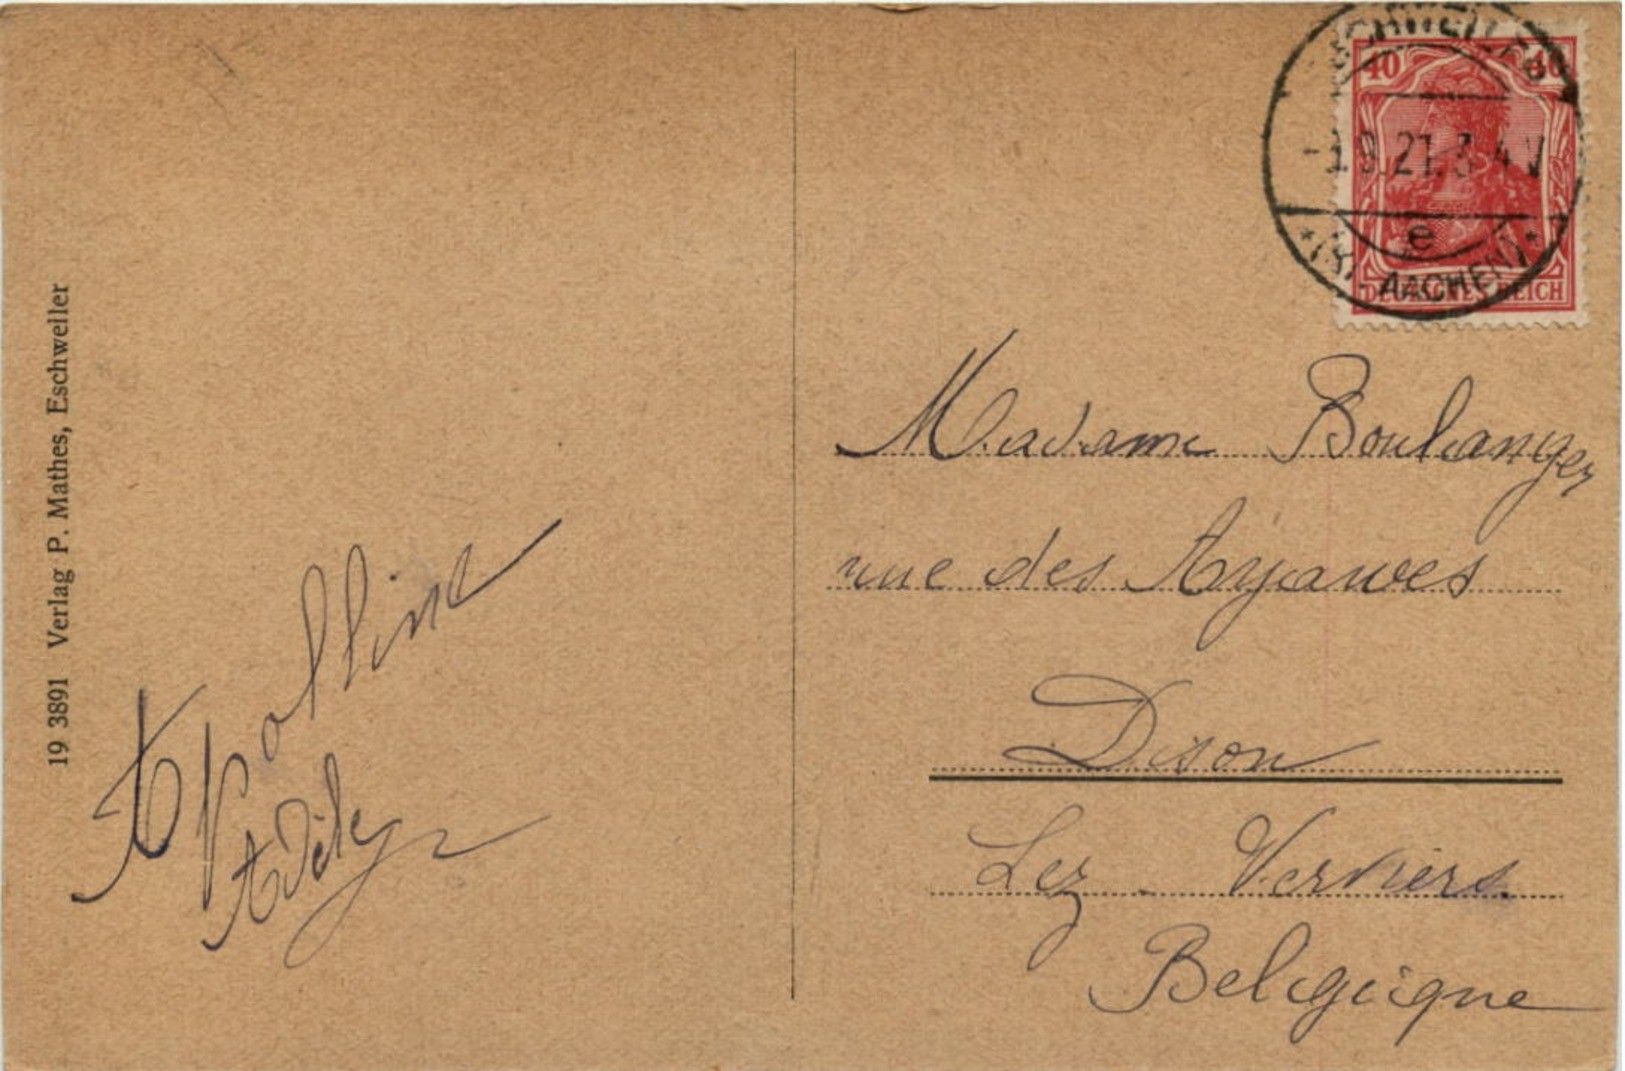 19 3891 Verlag P. Mathes, Eschweiler
Apolline
Adily
ESCHWEILER
-1.9.21.3-4V
e
*(RZ. AACHEN)*
40 40
DEUTSCHES REICH
Madame Boulanger
rue des
Dison
Lez-Verviers
Belgique